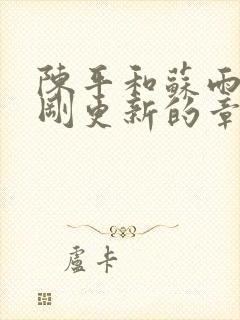 陳平和蘇雨
剛更新的章
盧卡